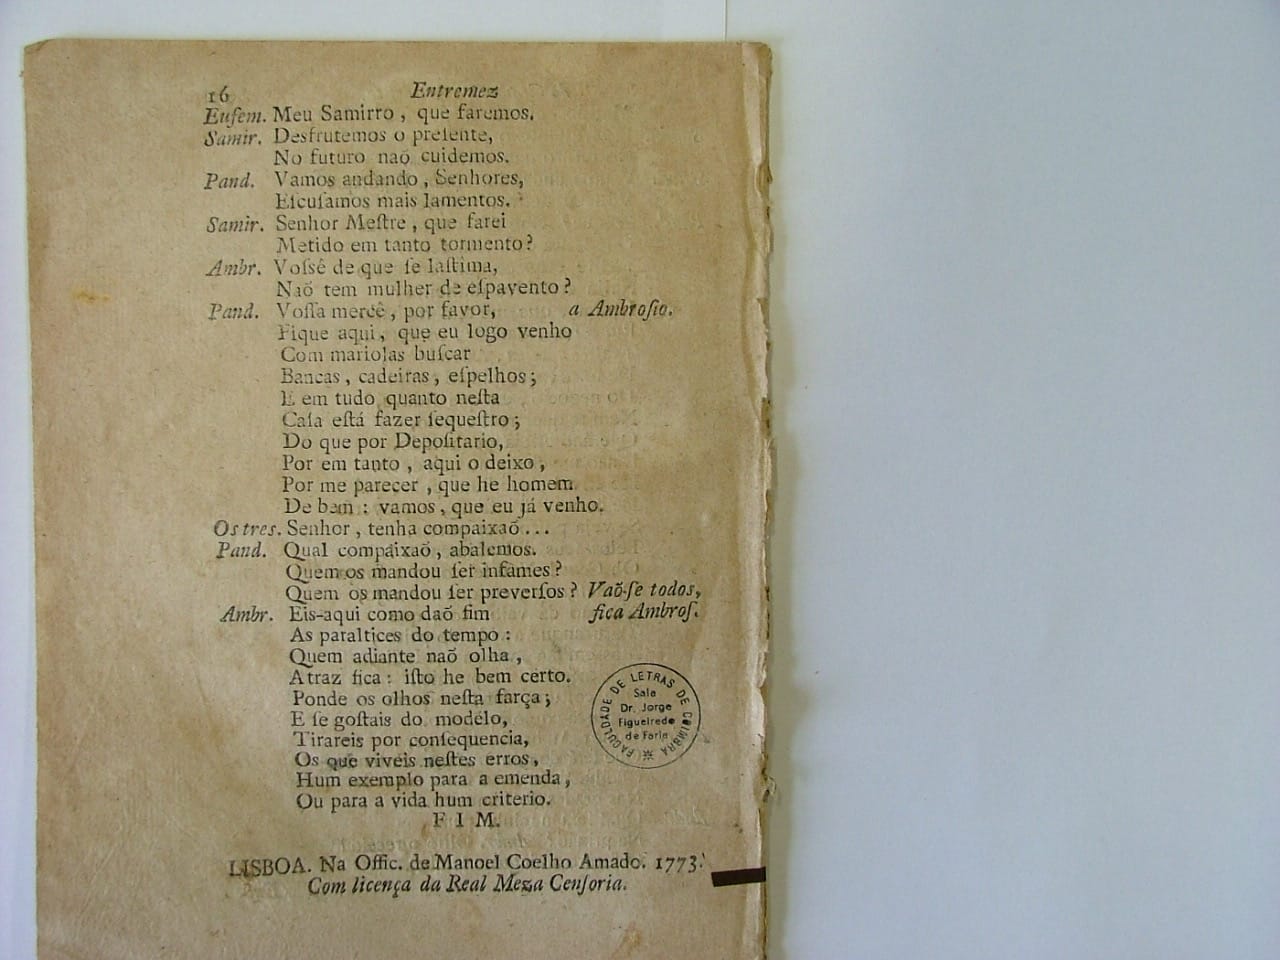 16 Entremez
Euſem. Meu Samirro, que faremos.
Samir. Desfrutemos o preſente,
No futuro naõ cuidemos.
Pand. Vamos andando, Senhores,
Eſcuſamos mais lamentos.
Samir. Senhor Meſtre, que farei
Metido em tanto tormento?
Ambr. Voſsê de que ſe laſtima,
Naõ tem mulher de eſpavento?
Pand. Voſſa mercê, por favor, a Ambroſio.
Fique aqui, que eu logo venho
Com mariolas buſcar
Bancas, cadeiras, eſpelhos;
E em tudo quanto neſta
Caſa eſtá fazer ſequeſtro;
Do que por Depoſitario,
Por em tanto, aqui o deixo,
Por me parecer, que he homem
De bem: vamos, que eu já venho.
Os tres. Senhor, tenha compaixaõ...
Pand. Qual compaixaõ, abalemos.
Quem os mandou ſer infames?
Quem os mandou ſer preverſos? Vaõ-ſe todos,
Ambr. Eis-aqui como daõ fim fica Ambroſ.
As paraltices do tempo:
Quem adiante naõ olha,
Atraz fica: iſto he bem certo.
Ponde os olhos neſta farça;
E ſe goſtais do modélo,
Tirareis por conſequencia,
Os que viveis neſtes erros,
Hum exemplo para a emenda,
Ou para a vida hum criterio.
FIM.
LISBOA. Na Offic. de Manoel Coelho Amado. 1773.
Com licença da Real Meza Cenſoria.
FACULDADE DE LETRAS DE COIMBRA
Sala
Dr. Jorge
Figueiredo
de Faria